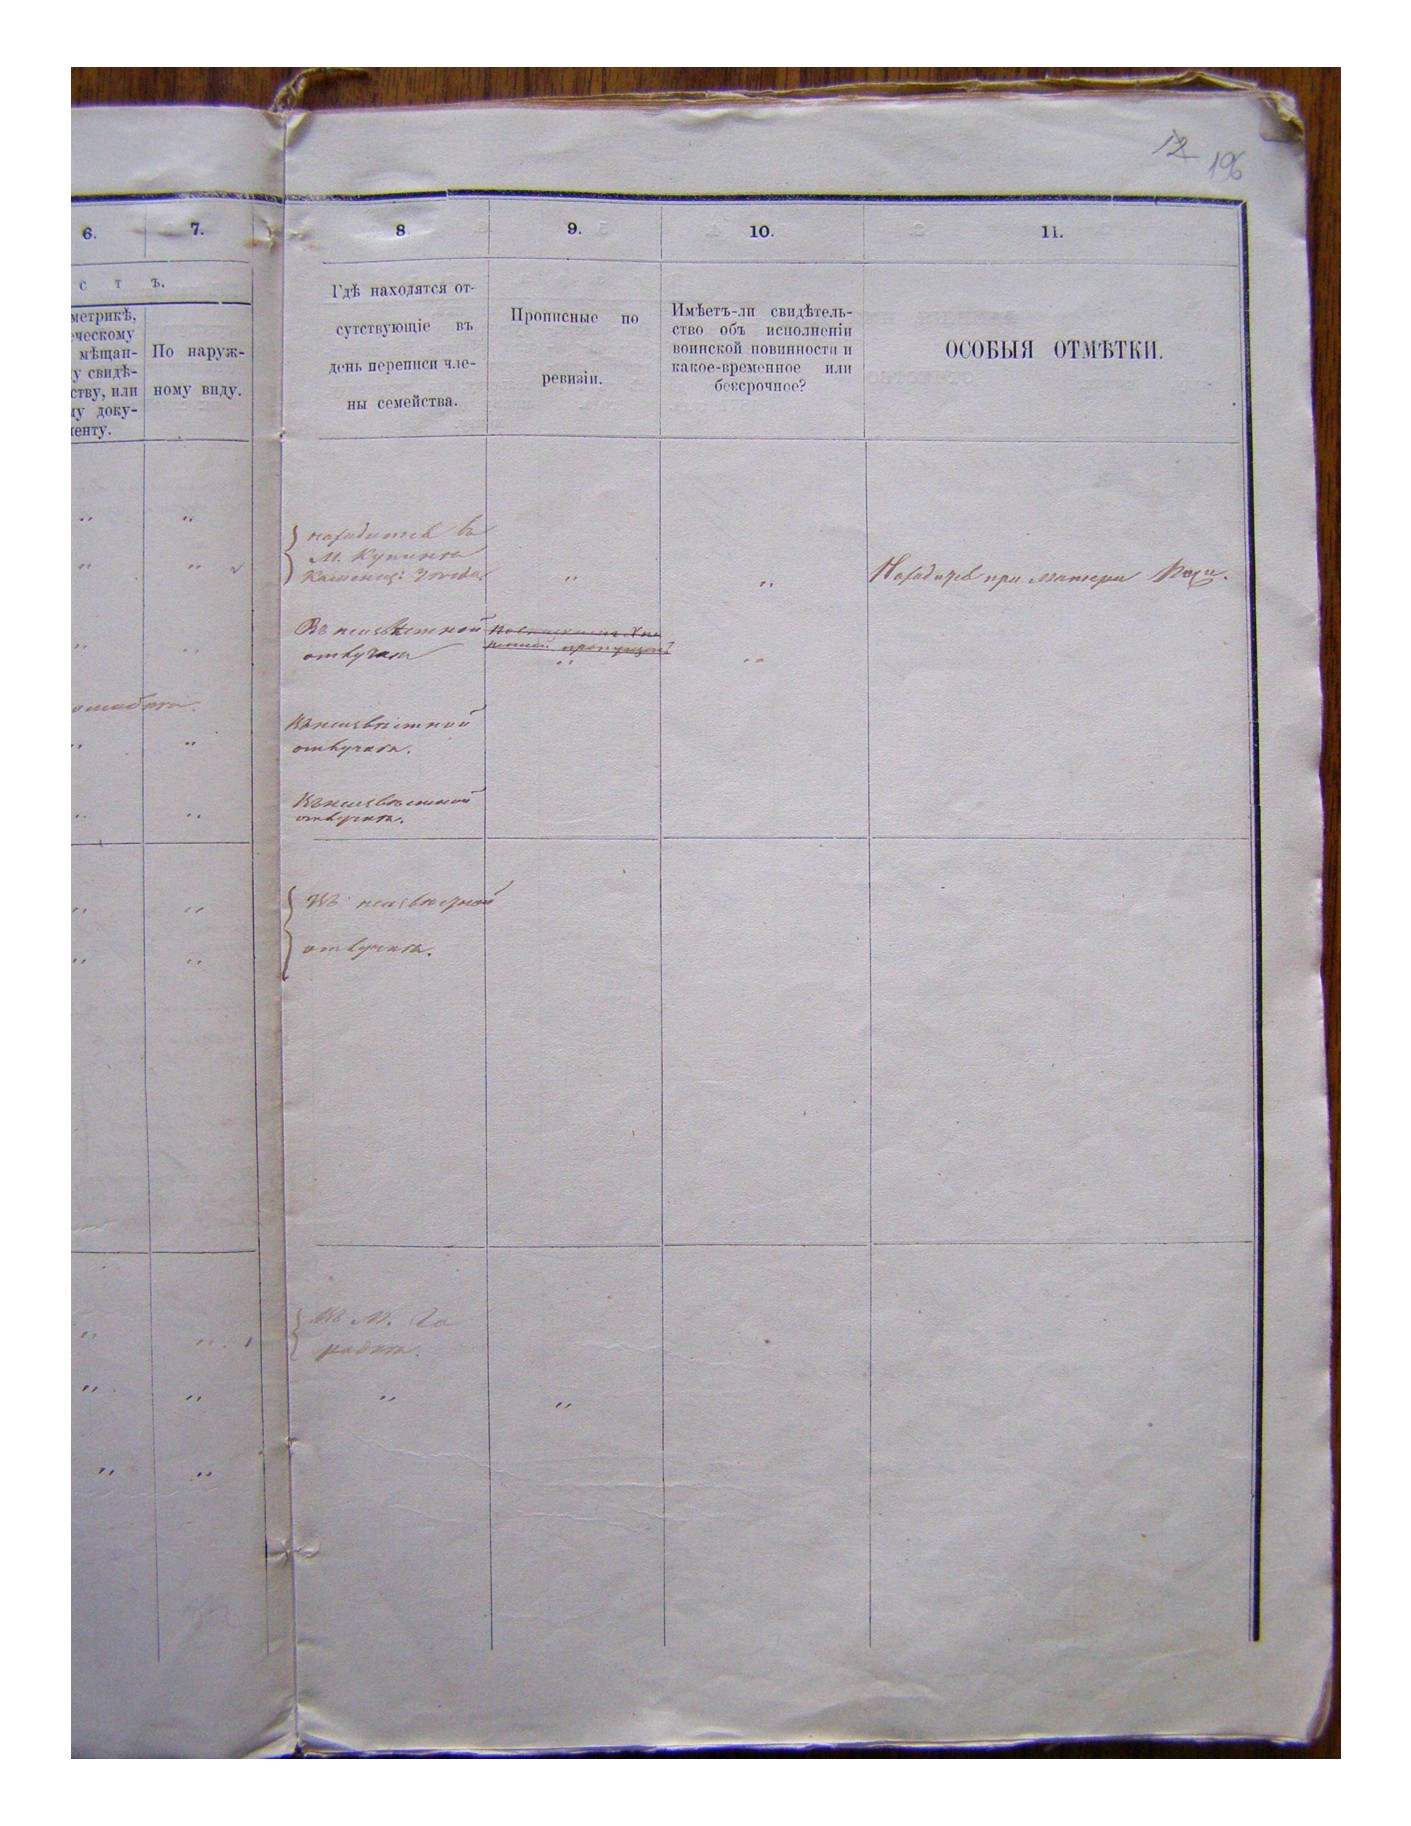 12
196
6.
7.
8
9.
10.
11.
с т ъ.
метрикѣ,
ческому
мѣщан-
у свидѣ-
ству, или
му доку-
менту.
По наруж-
ному виду.
Гдѣ находятся от-
сутствующіе въ
день переписи чле-
ны семейства.
Прописные по
ревизіи.
Имѣетъ-ли свидѣтель-
ство объ исполненіи
воинской повинности и
какое-временное или
безсрочное?
ОСОБЫЯ ОТМѢТКИ.
" "
находится въ
М. Купинѣ
" "
" "
Находится при матери
Въ неизвѣстной
отлучкѣ
" "
" "
Въ неизвѣстной
отлучкѣ.
" "
Въ неизвѣстной
отлучкѣ.
" "
" "
Въ неизвѣстной
" "
отлучкѣ.
Въ М.
" "
" "
" "
" "